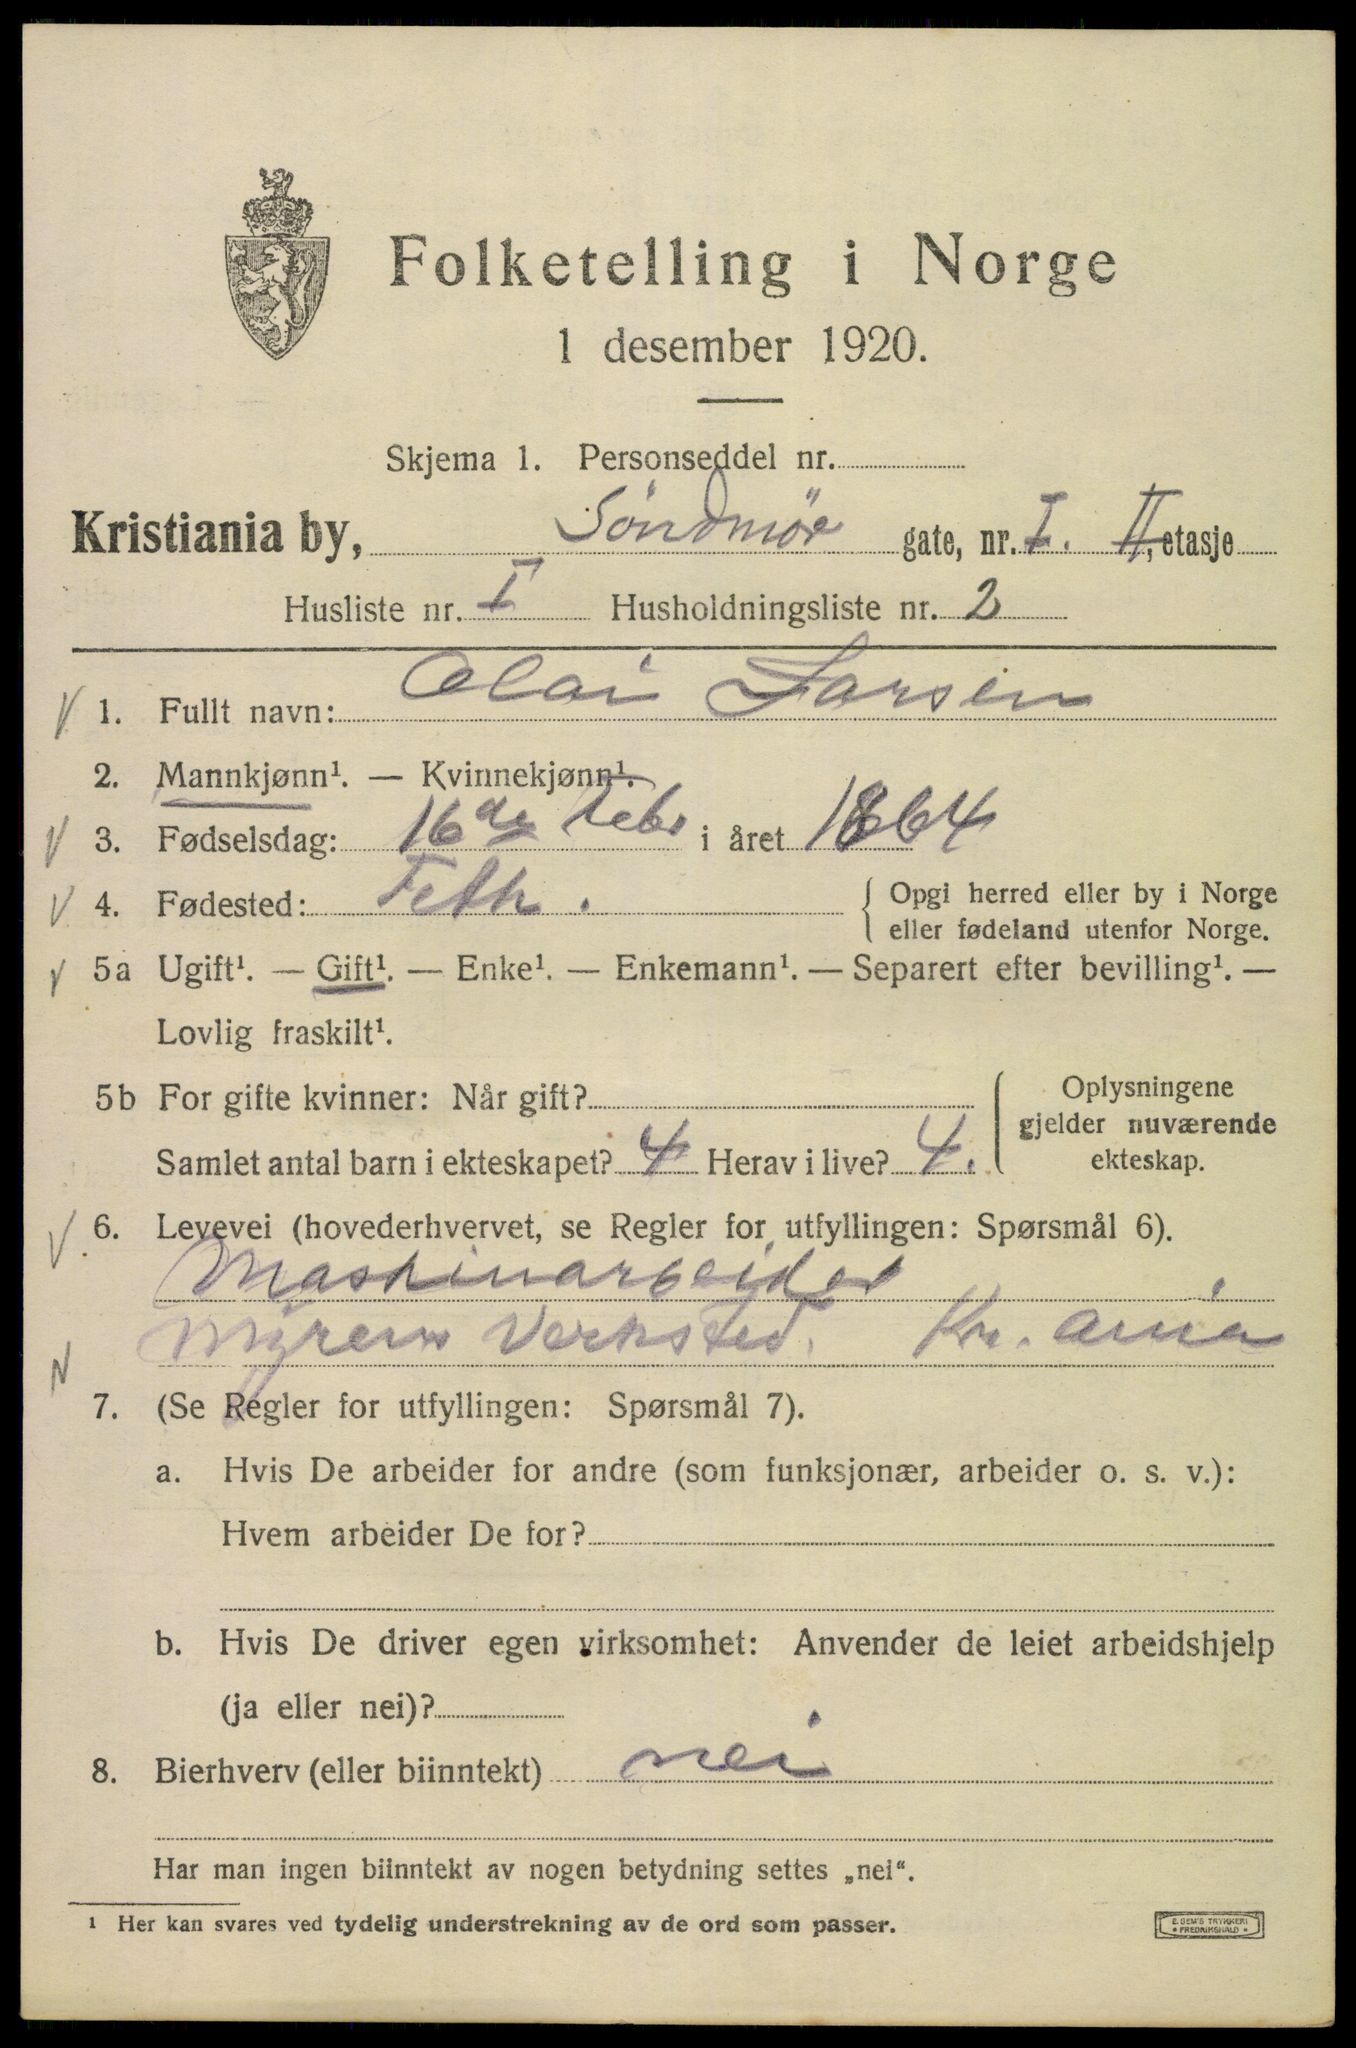 Folketelling i Norge
1 desember 1920.
Skjema 1. Personseddel nr.
Kristiania by, Søndmør gate, nr. I. II, etasje
Husliste nr. I Husholdningsliste nr. 2
1. Fullt navn: Olai Larsen
2. Mannkjønn¹. — Kvinnekjønn¹.
3. Fødselsdag: 16de Febr i året 1864
4. Fødested: Feth. Opgi herred eller by i Norge
eller fødeland utenfor Norge.
5a Ugift¹. — Gift¹. — Enke¹. — Enkemann¹. — Separert efter bevilling¹. —
Lovlig fraskilt¹.
5b For gifte kvinner: Når gift? Oplysningene
gjelder nuværende
Samlet antal barn i ekteskapet? 4 Herav i live? 4. ekteskap.
6. Levevei (hovederhvervet, se Regler for utfyllingen: Spørsmål 6).
Maskinarbeider
Myrens Verksted. Kr. ania
7. (Se Regler for utfyllingen: Spørsmål 7).
a. Hvis De arbeider for andre (som funksjonær, arbeider o. s. v.):
Hvem arbeider De for?
b. Hvis De driver egen virksomhet: Anvender de leiet arbeidshjelp
(ja eller nei)?
8. Bierhverv (eller biinntekt) nei
Har man ingen biinntekt av nogen betydning settes „nei“.
¹ Her kan svares ved tydelig understrekning av de ord som passer.
E. SEM'S TRYKKERI
• FREDRIKSHALD •